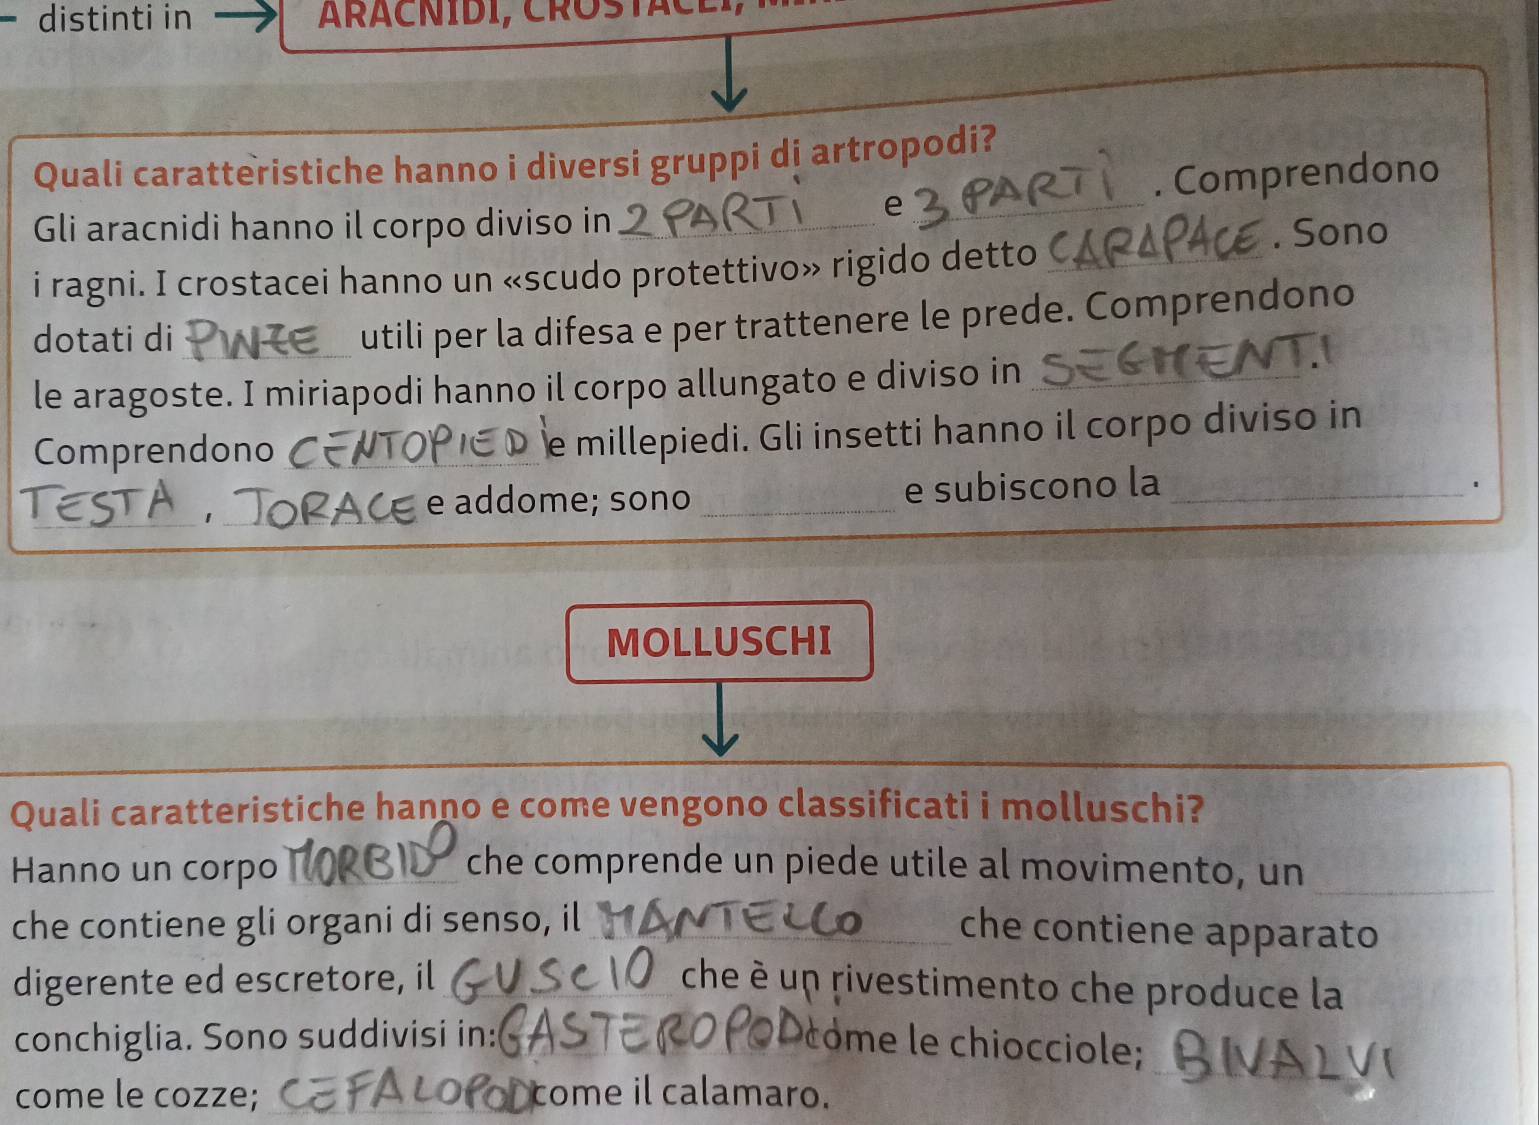 distinti in
ARACNIDI, CROSTACEI,
Quali caratteristiche hanno i diversi gruppi di artropodi?
Gli aracnidi hanno il corpo diviso in 2 PARTI e 3 PARTI. Comprendono
i ragni. I crostacei hanno un «scudo protettivo» rigido detto CARAPACE. Sono
dotati di PINZE utili per la difesa e per trattenere le prede. Comprendono
le aragoste. I miriapodi hanno il corpo allungato e diviso in SEGMENTI.
Comprendono CENTOPIEDI e millepiedi. Gli insetti hanno il corpo diviso in
TESTA, TORACE e addome; sono ____ e subiscono la ____.
MOLLUSCHI
Quali caratteristiche hanno e come vengono classificati i molluschi?
Hanno un corpo MORBIDO che comprende un piede utile al movimento, un ____
che contiene gli organi di senso, il MANTELLO che contiene apparato
digerente ed escretore, il GUSCIO che è un rivestimento che produce la
conchiglia. Sono suddivisi in: GASTEROPODI come le chiocciole; BIVALVI
come le cozze; CEFALOPODI come il calamaro.